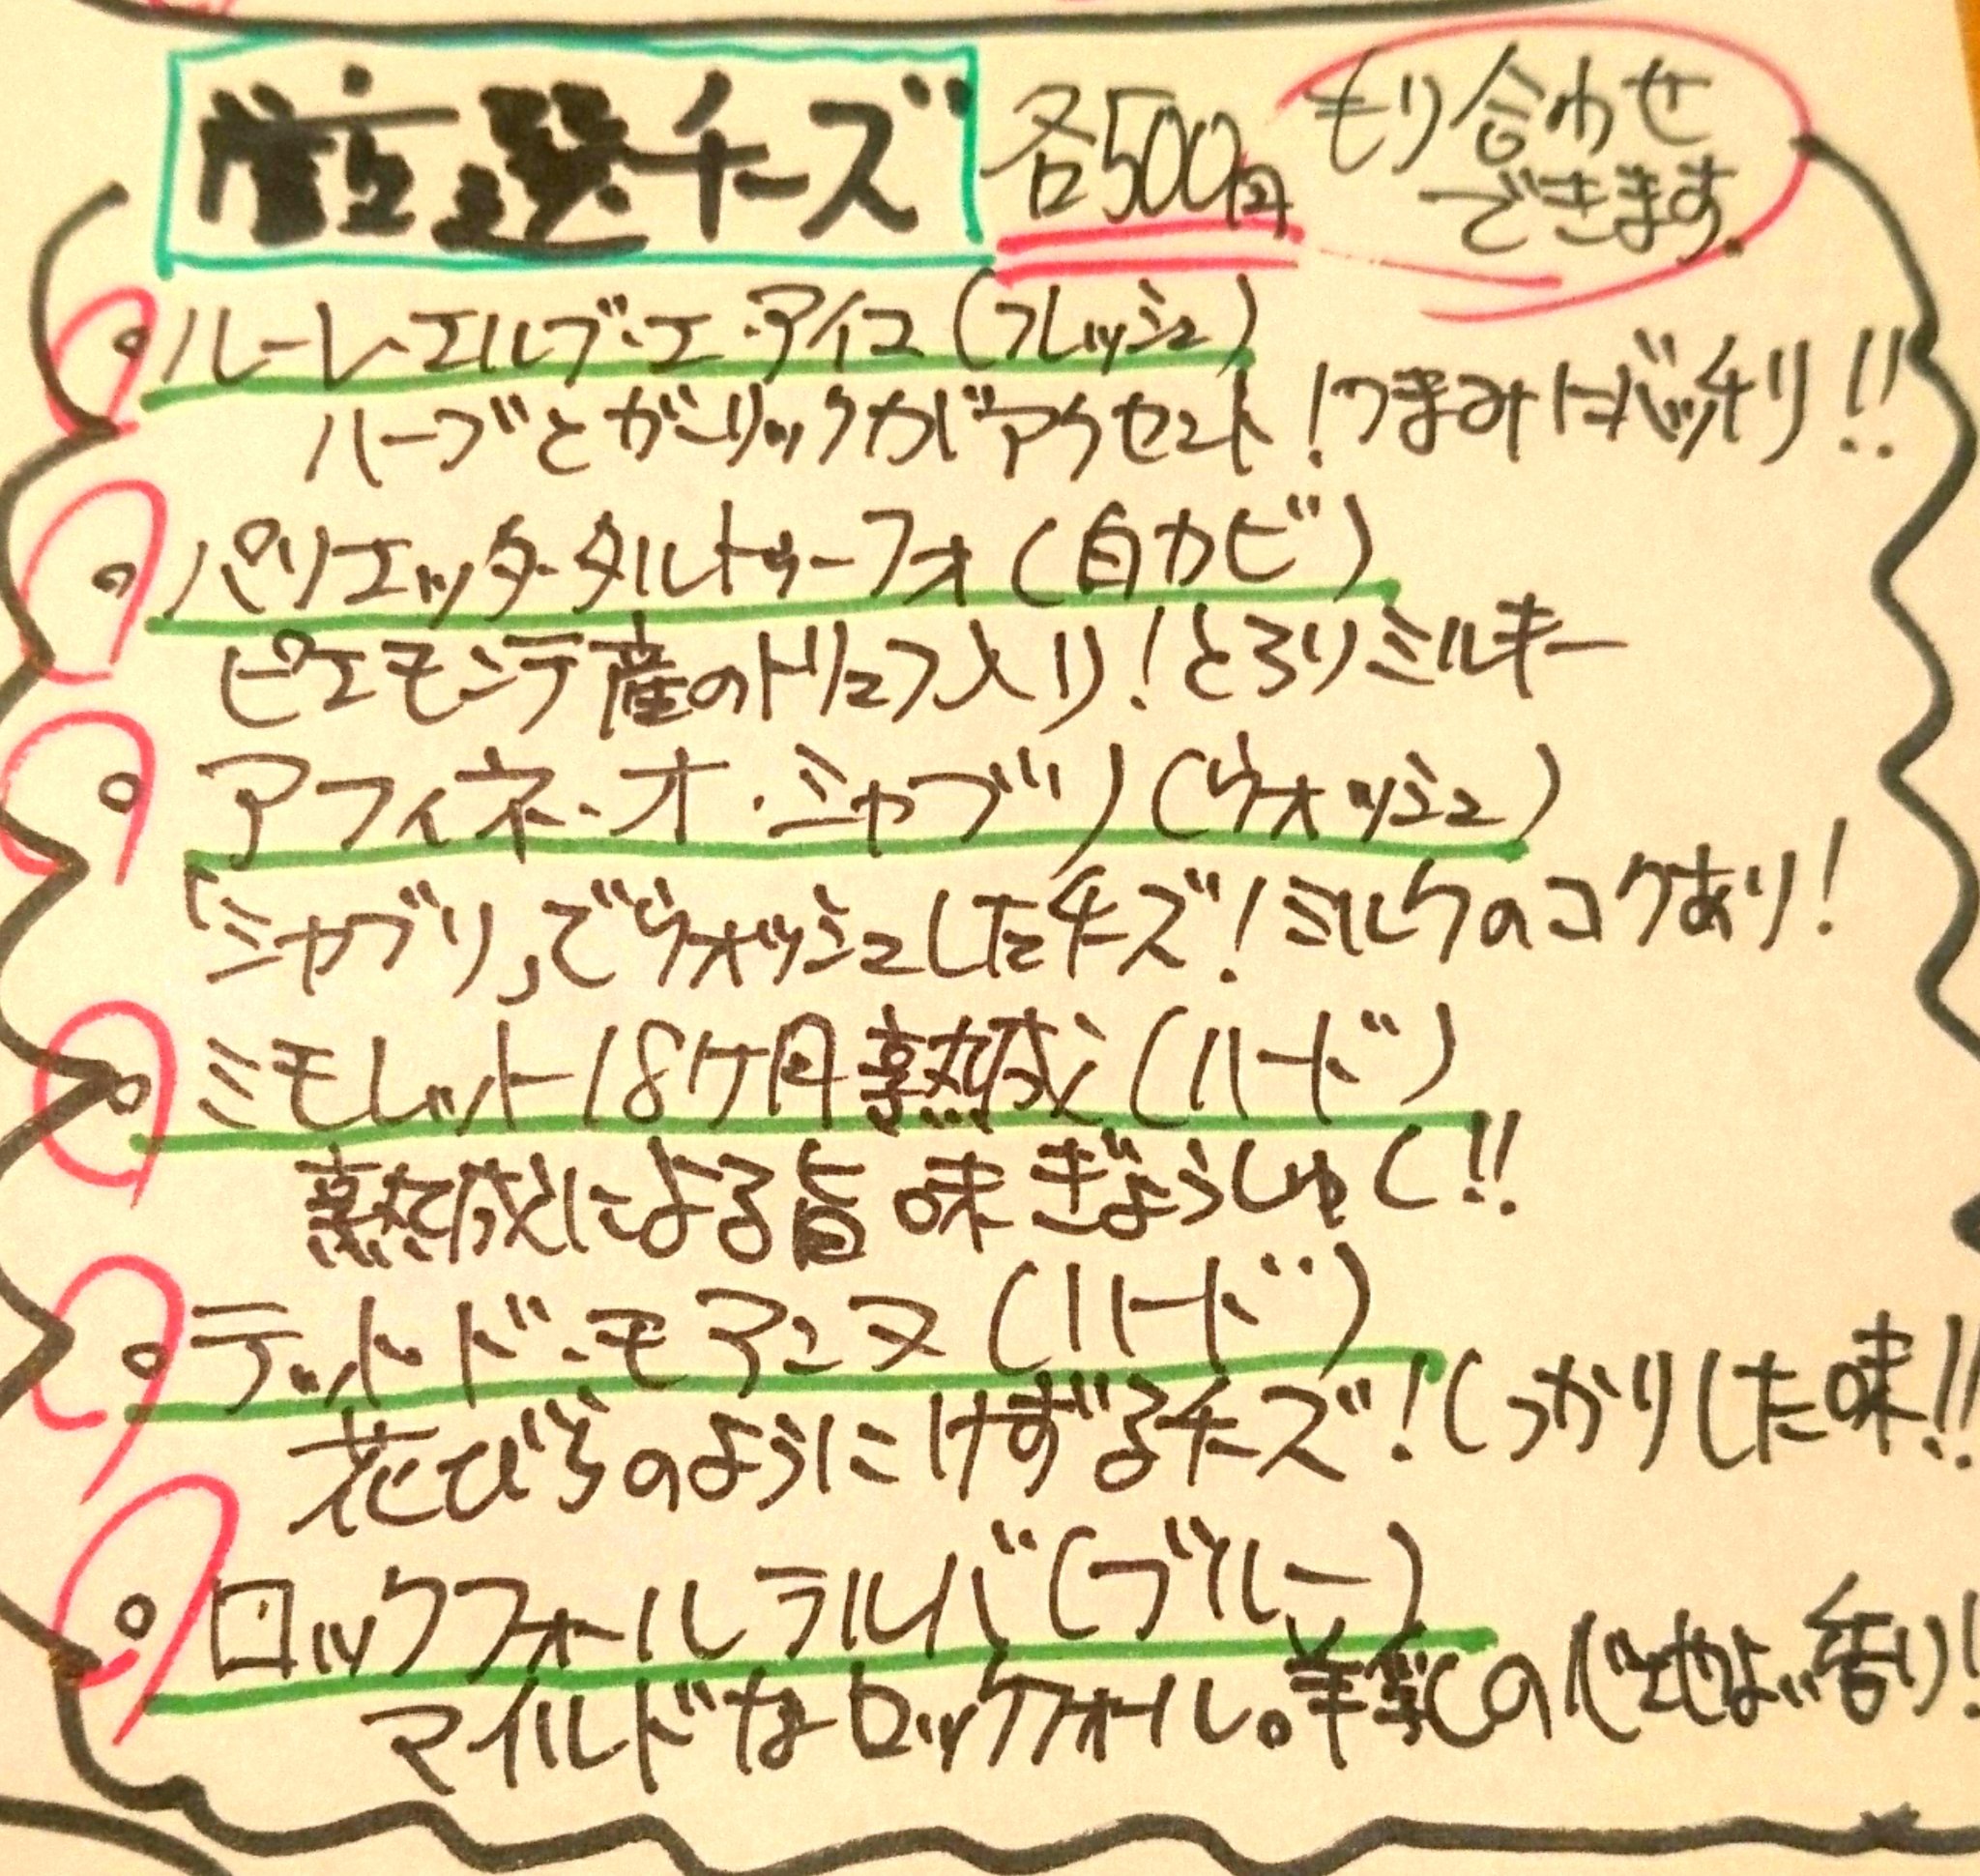 厳選チーズ 各500円 もり合わせ
できます。
ルーレ・エルブ・エ・アイユ(フレッシュ)
ハーブとガーリックがアクセント!つまみにバッチリ!!
パリエッタ・タルトゥーフォ(白カビ)
ピエモンテ産のトリュフ入り!とろりミルキー
アフィネ・オ・シャブリ(ウォッシュ)
「シャブリ」でウォッシュしたチーズ!ミルクのコクあり!
ミモレット18ケ月熟成(ハード)
熟成による旨味ぎょうしゅく!!
テット・ド・モアンヌ(ハード)
花びらのようにけずるチーズ!しっかりした味!!
ロックフォールラルバ(ブルー)
マイルドなロックフォール。羊乳の心地よい香り!